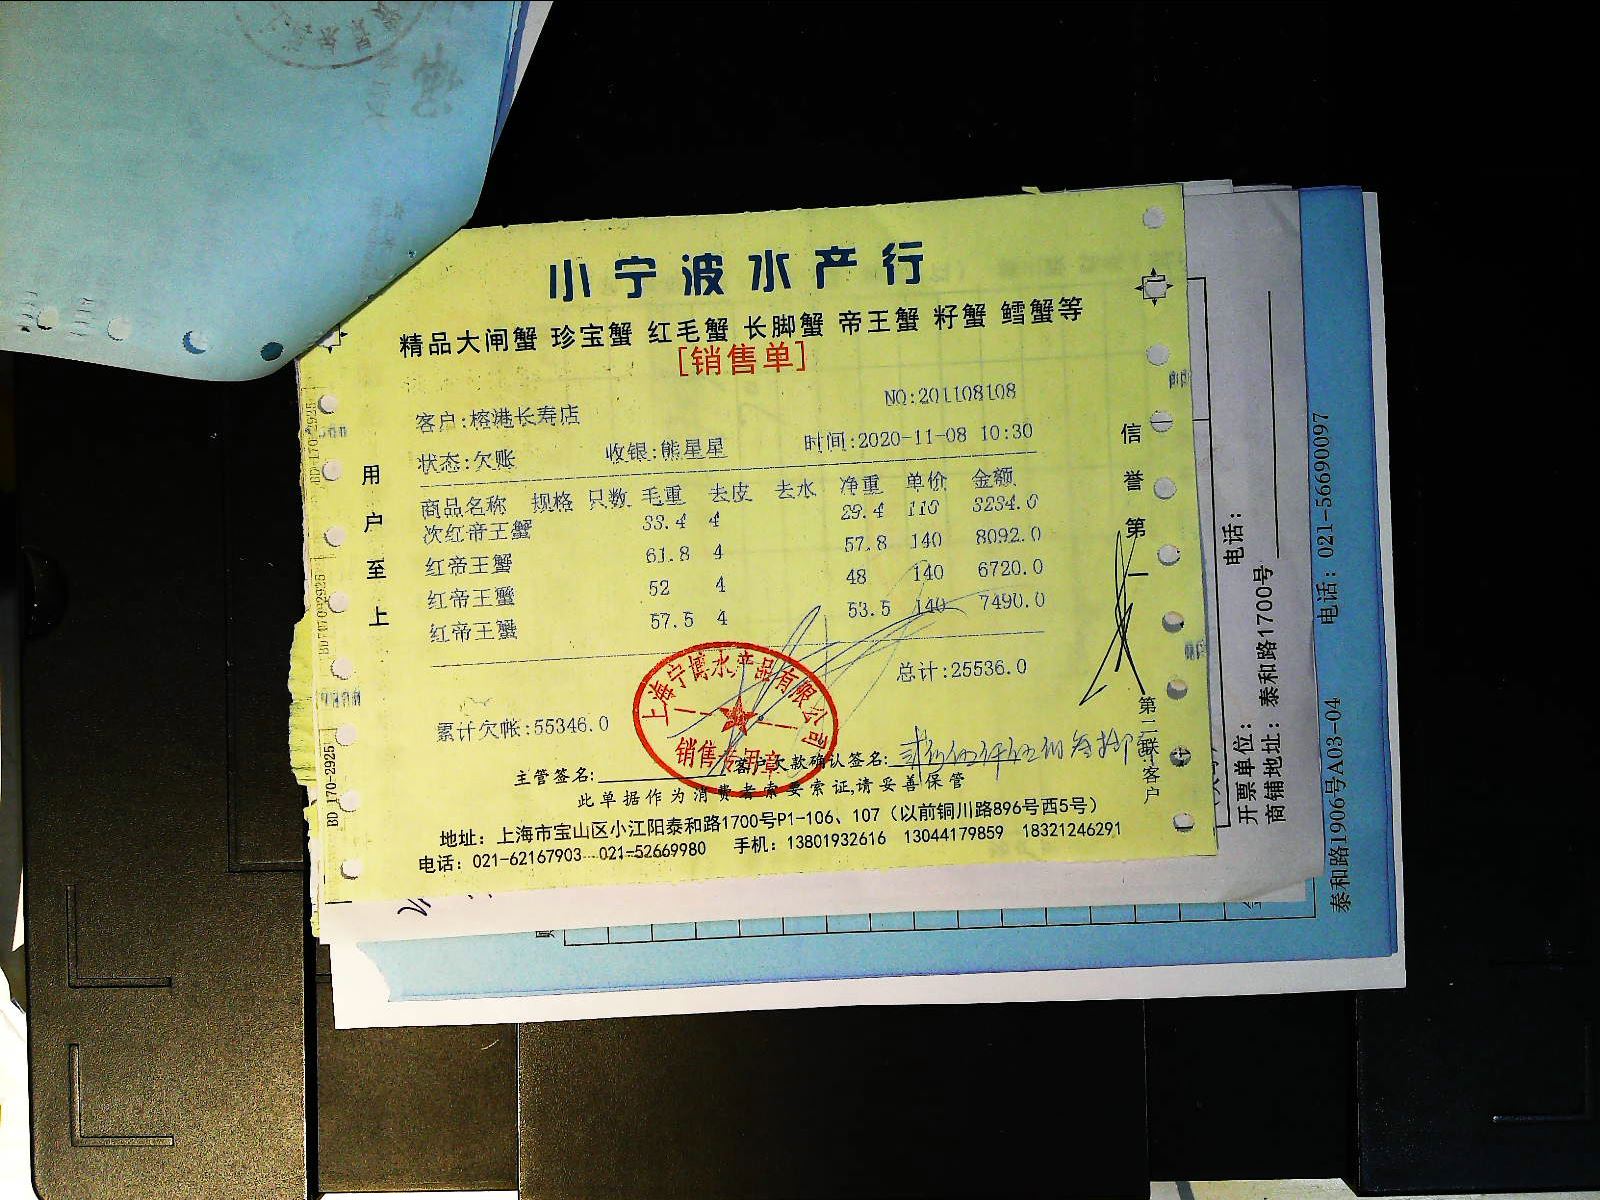 小宁波水产行
精品大闸蟹 珍宝蟹 红毛蟹 长脚蟹 帝王蟹 籽蟹 鳕蟹等
[销售单]
NO:201108108
客户:榕港长寿店
状态:欠账 收银:熊星星 时间:2020-11-08 10:30
商品名称 规格 只数 毛重 去皮 去水 净重 单价 金额
次红帝王蟹 33.4 4 29.4 110 3234.0
红帝王蟹 61.8 4 57.8 140 8092.0
红帝王蟹 52 4 48 140 6720.0
红帝王蟹 57.5 4 53.5 140 7490.0
总计:25536.0
累计欠帐:55346.0
上海宁博水产品有限公司
销售专用章
主管签名: 客户欠款确认签名:
此单据作为消费者索要索证,请妥善保管
地址: 上海市宝山区小江阳泰和路1700号P1-106、107 (以前铜川路896号西5号)
电话: 021-62167903 021-52669980 手机: 13801932616 13044179859 18321246291
用户至上
信誉第一
第二联:客户
BD 170-2925
BD 170-2925
BD 170-2925
电话:
开票单位:
商铺地址: 泰和路1700号
泰和路1906号A03-04 电话: 021-56690097